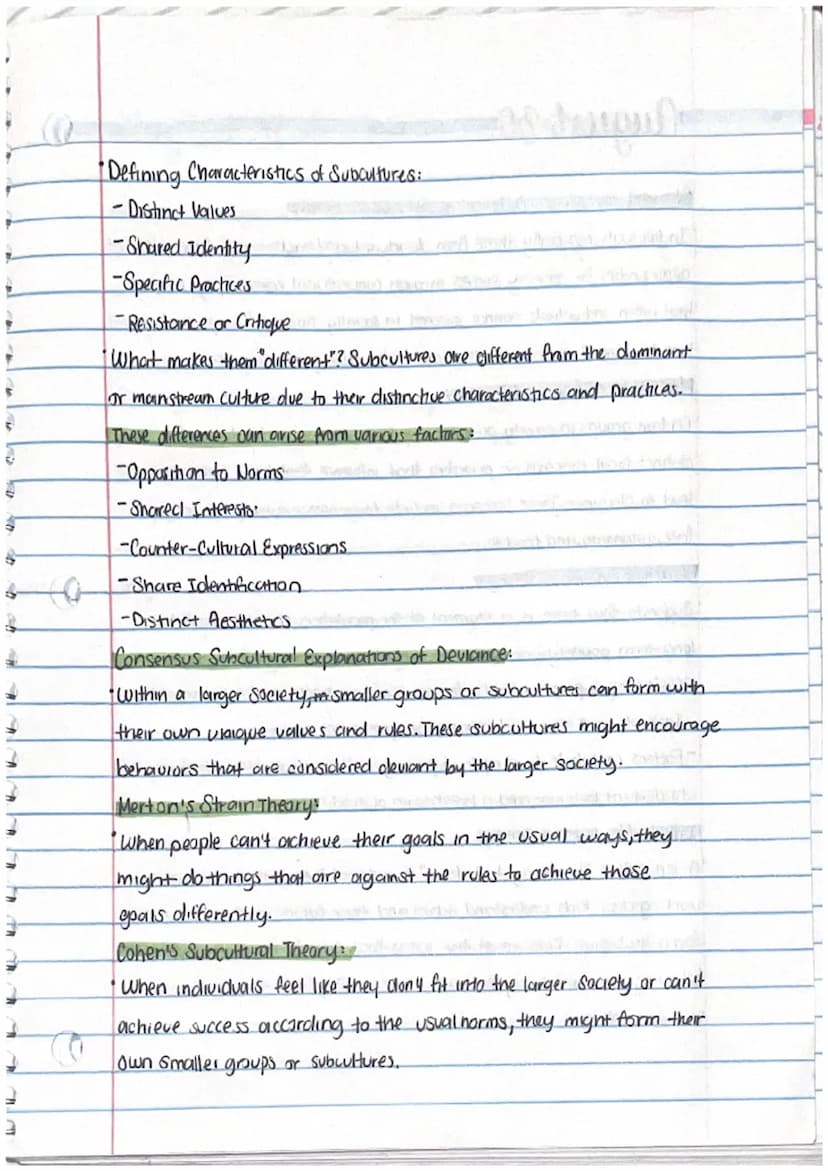 • Defining Characteristics of Subcultures:
- Distinct Values
- Shared Identity
- Specific Practices
- Resistance or Critique
• What makes them "different"? Subcultures are different from the dominant
or mainstream culture due to their distinctive characteristics and practices.
These differences can arise from various factors:
- Opposition to Norms
- Shared Interests
- Counter-Cultural Expressions
- Share Identification
- Distinct Aesthetics
Consensus Subcultural Explanations of Deviance:
• Within a larger society, smaller groups or subcultures can form with
their own unique values and rules. These subcultures might encourage
behaviors that are considered deviant by the larger society.
Merton's Strain Theory:
• When people can't achieve their goals in the usual ways, they
might do things that are against the rules to achieve those
goals differently.
Cohen's Subcultural Theory:
• When individuals feel like they don't fit into the larger society or can't
achieve success according to the usual norms, they might form their
own smaller groups or subcultures.